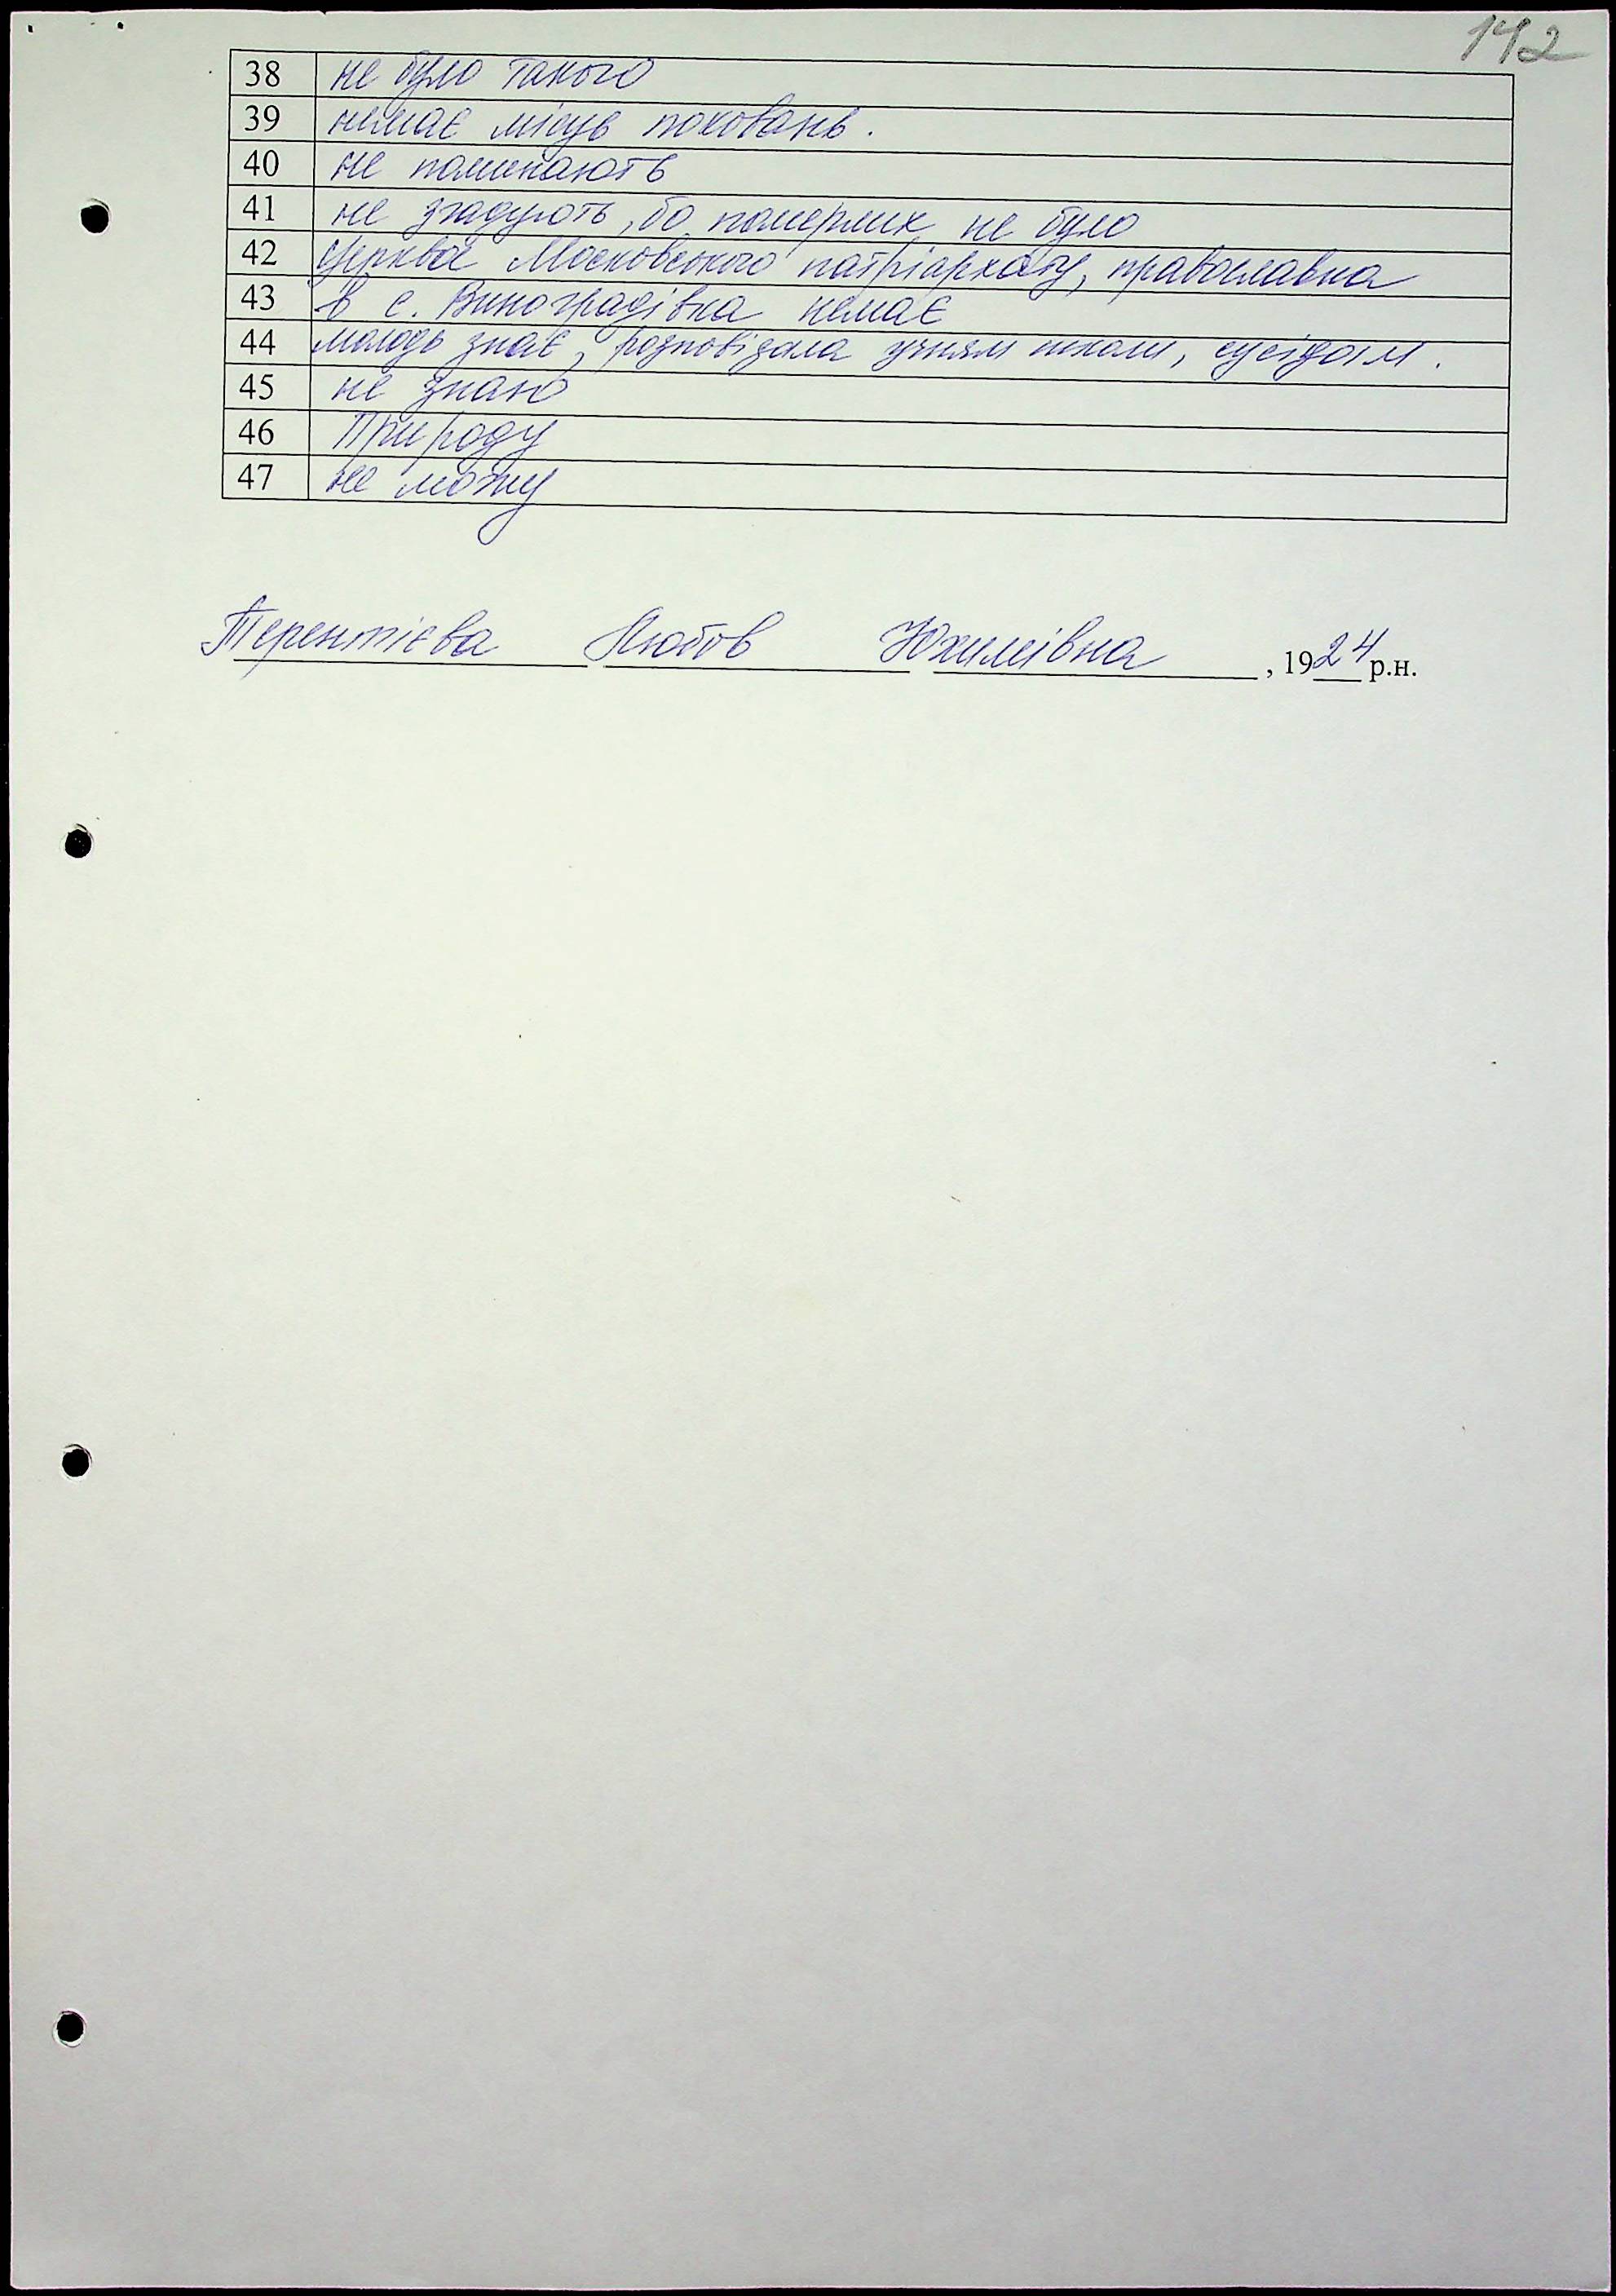 142
38 не було такого
39 немає місць поховань.
40 не поминають
41 не згадують, бо померлих не було
42 церква Московського патріархату, православна
43 в с. Виноградівка немає
44 молодь знає, розповідала учням школи, сусідам.
45 не знаю
46 Природу
47 не можу
Терентієва Любов Юхимівна, 1924 р.н.